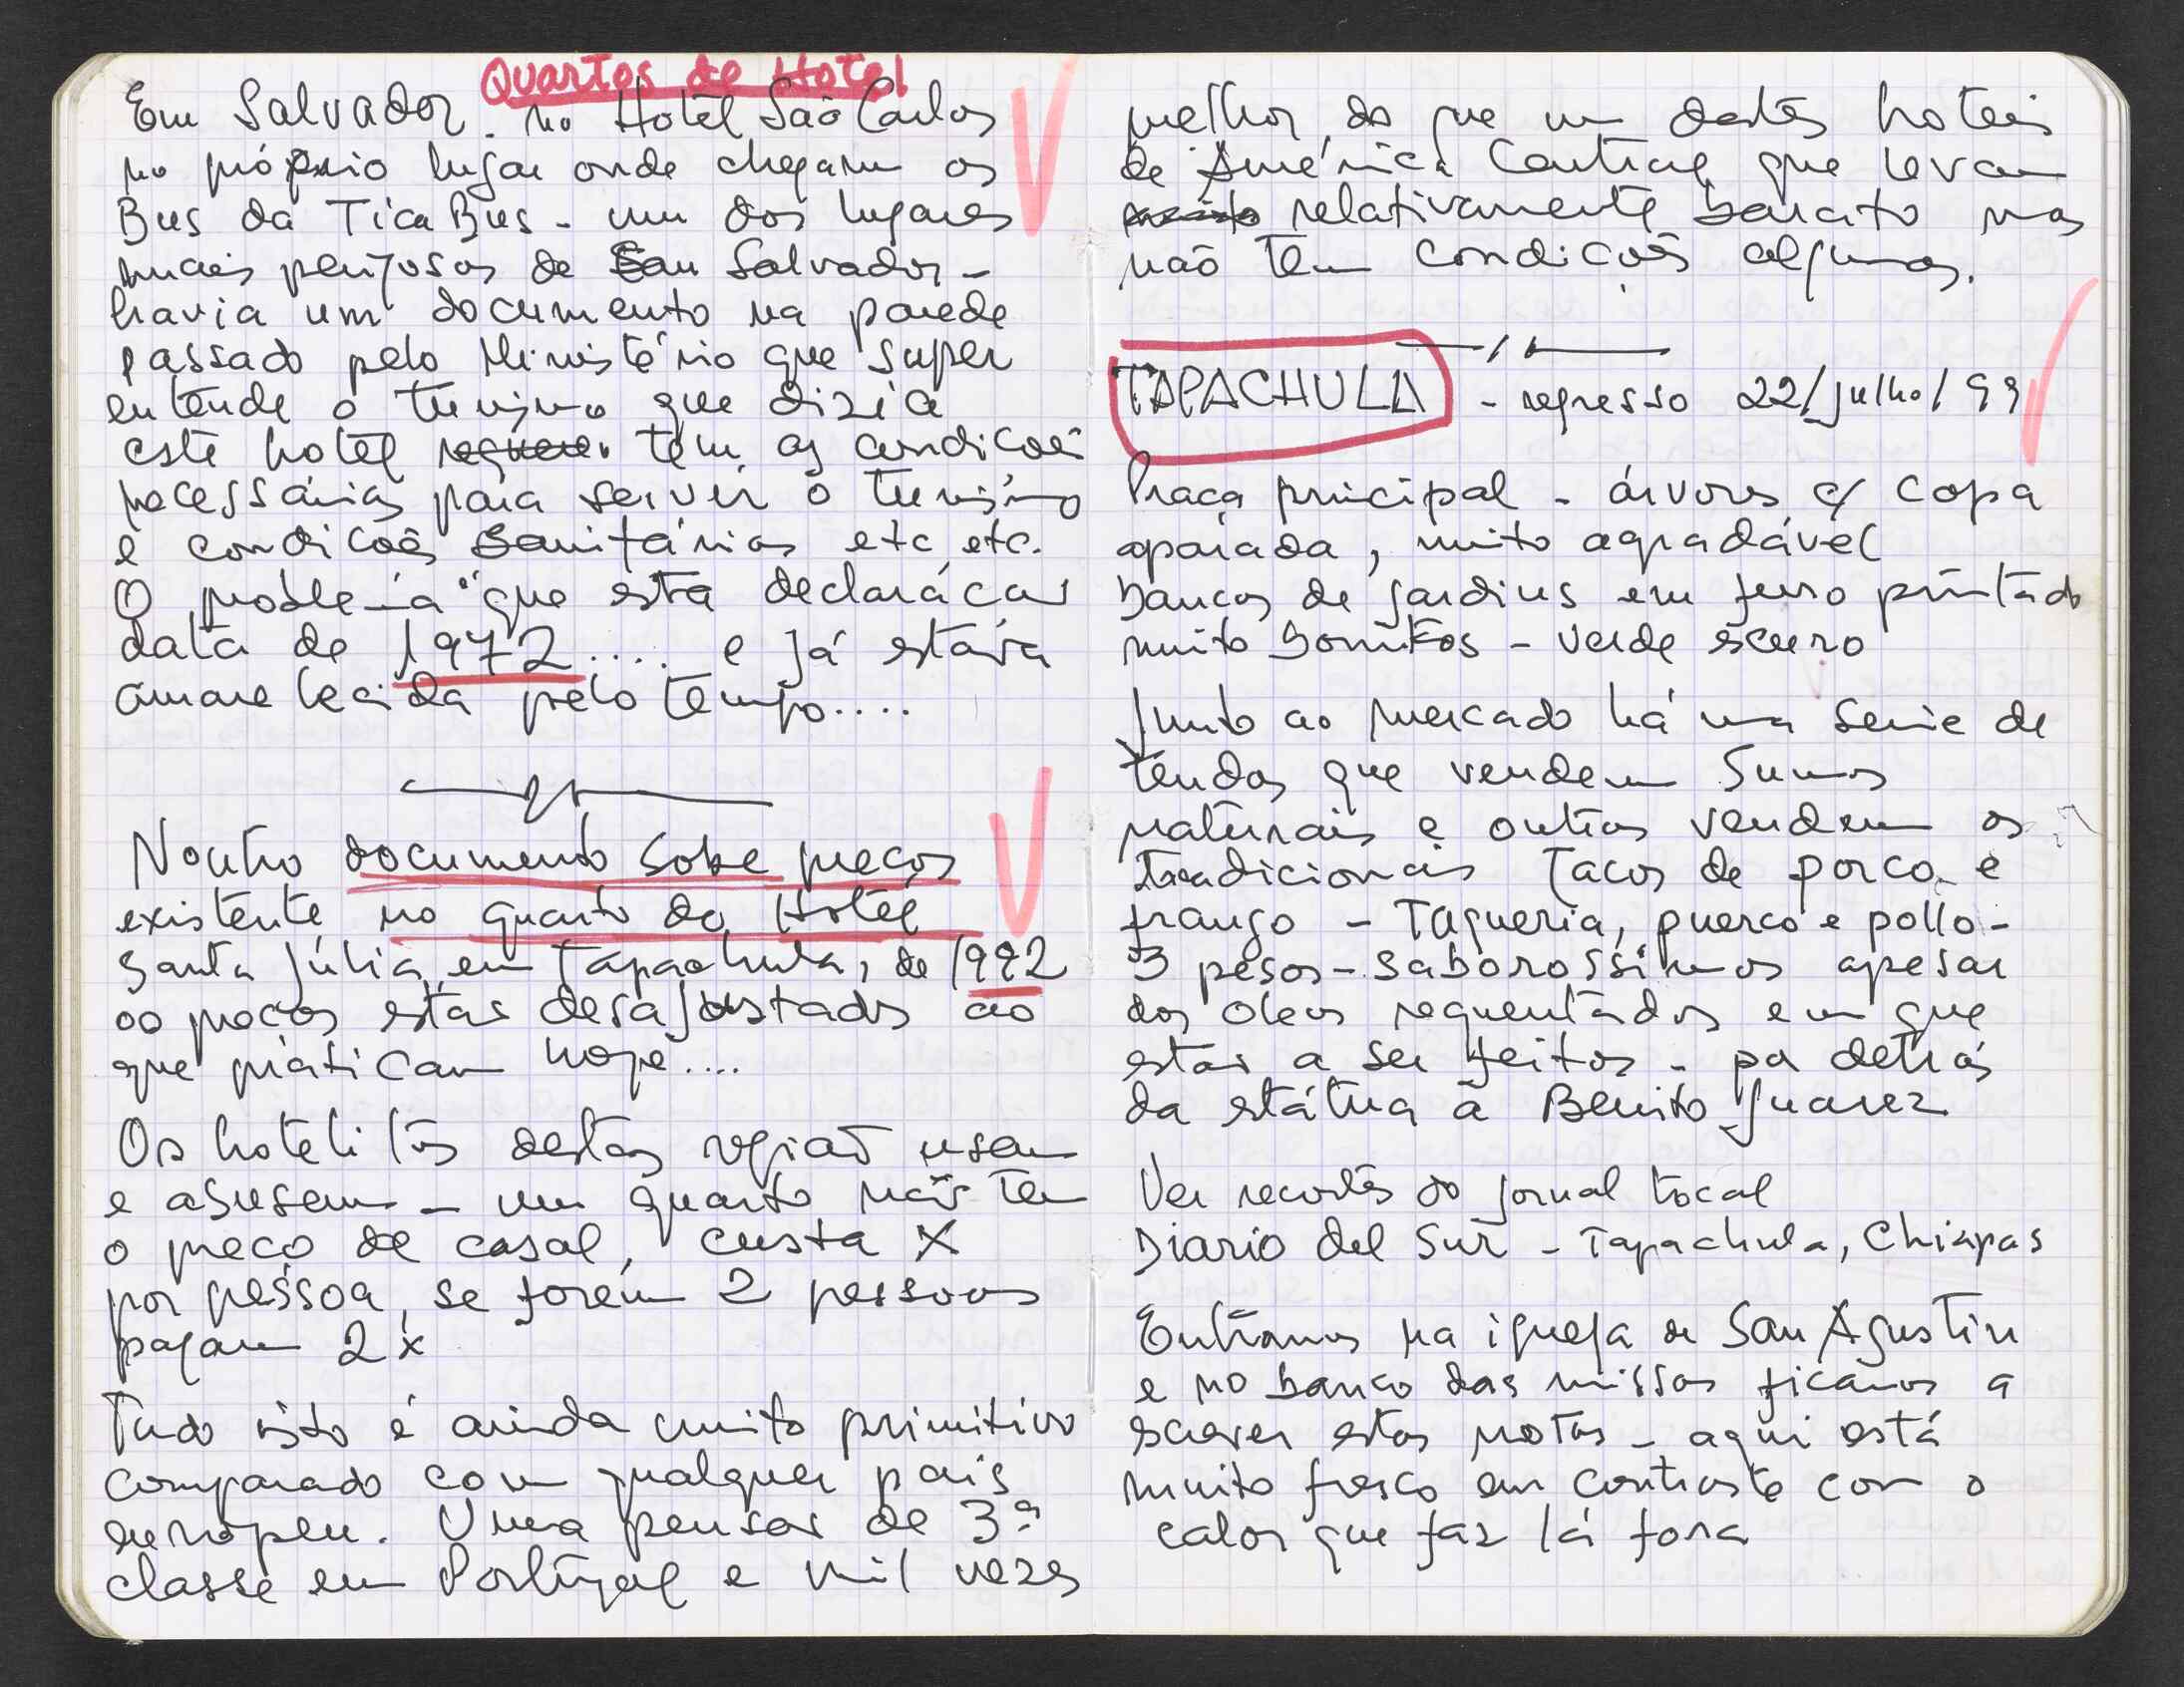 Quartos de Hotel
Em Salvador. no Hotel São Carlos
no próprio lugar onde chegam os
Bus da Tica Bus - um dos lugares
mais perigosos de San Salvador -
havia um documento na parede
passado pelo Ministério que super
entende o turismo que dizia
este hotel tem as condições
necessárias para servir o turismo
e condições sanitárias etc etc.
O problema é que esta declaração
data de 1972.... e já estava
amarelecida pelo tempo....
Noutro documento sobre preços
existente no quarto do Hotel
Santa Júlia, em Tapachula, de 1992
os preços estão desajustados ao
que praticam hoje....
Os hotelitos destas regiões usam
e abusam - um quarto não tem
o preço de casal, custa X
por pessoa, se forem 2 pessoas
pagam 2x
Tudo isto é ainda muito primitivo
comparado com qualquer país
europeu. Uma pensão de 3ª
classe em Portugal e mil vezes
melhor do que um destes hoteis
de América Central que levam
relativamente barato mas
não tem condições algumas.
TAPACHULA - regresso 22/Julho/99
Praça principal - árvores c/ copa
aparada, muito agradável
bancos de jardins em ferro pintado
muito bonitos - verde escuro
Junto ao mercado há uma serie de
tendas que vendem sumos
naturais e outras vendem os
tradicionais Tacos de porco e
frango - Taqueria, puerco e pollo -
3 pesos - saborossimos apesar
dos oleos requentados em que
estão a ser feitos - por detrás
da estátua a Benito Juarez
Ver recortes do jornal local
Diario del Sur - Tapachula, Chiapas
Entramos na igreja de San Agustin
e no banco das missas ficamos a
escrever estas notas - aqui está
muito fresco em contraste com o
calor que faz lá fora